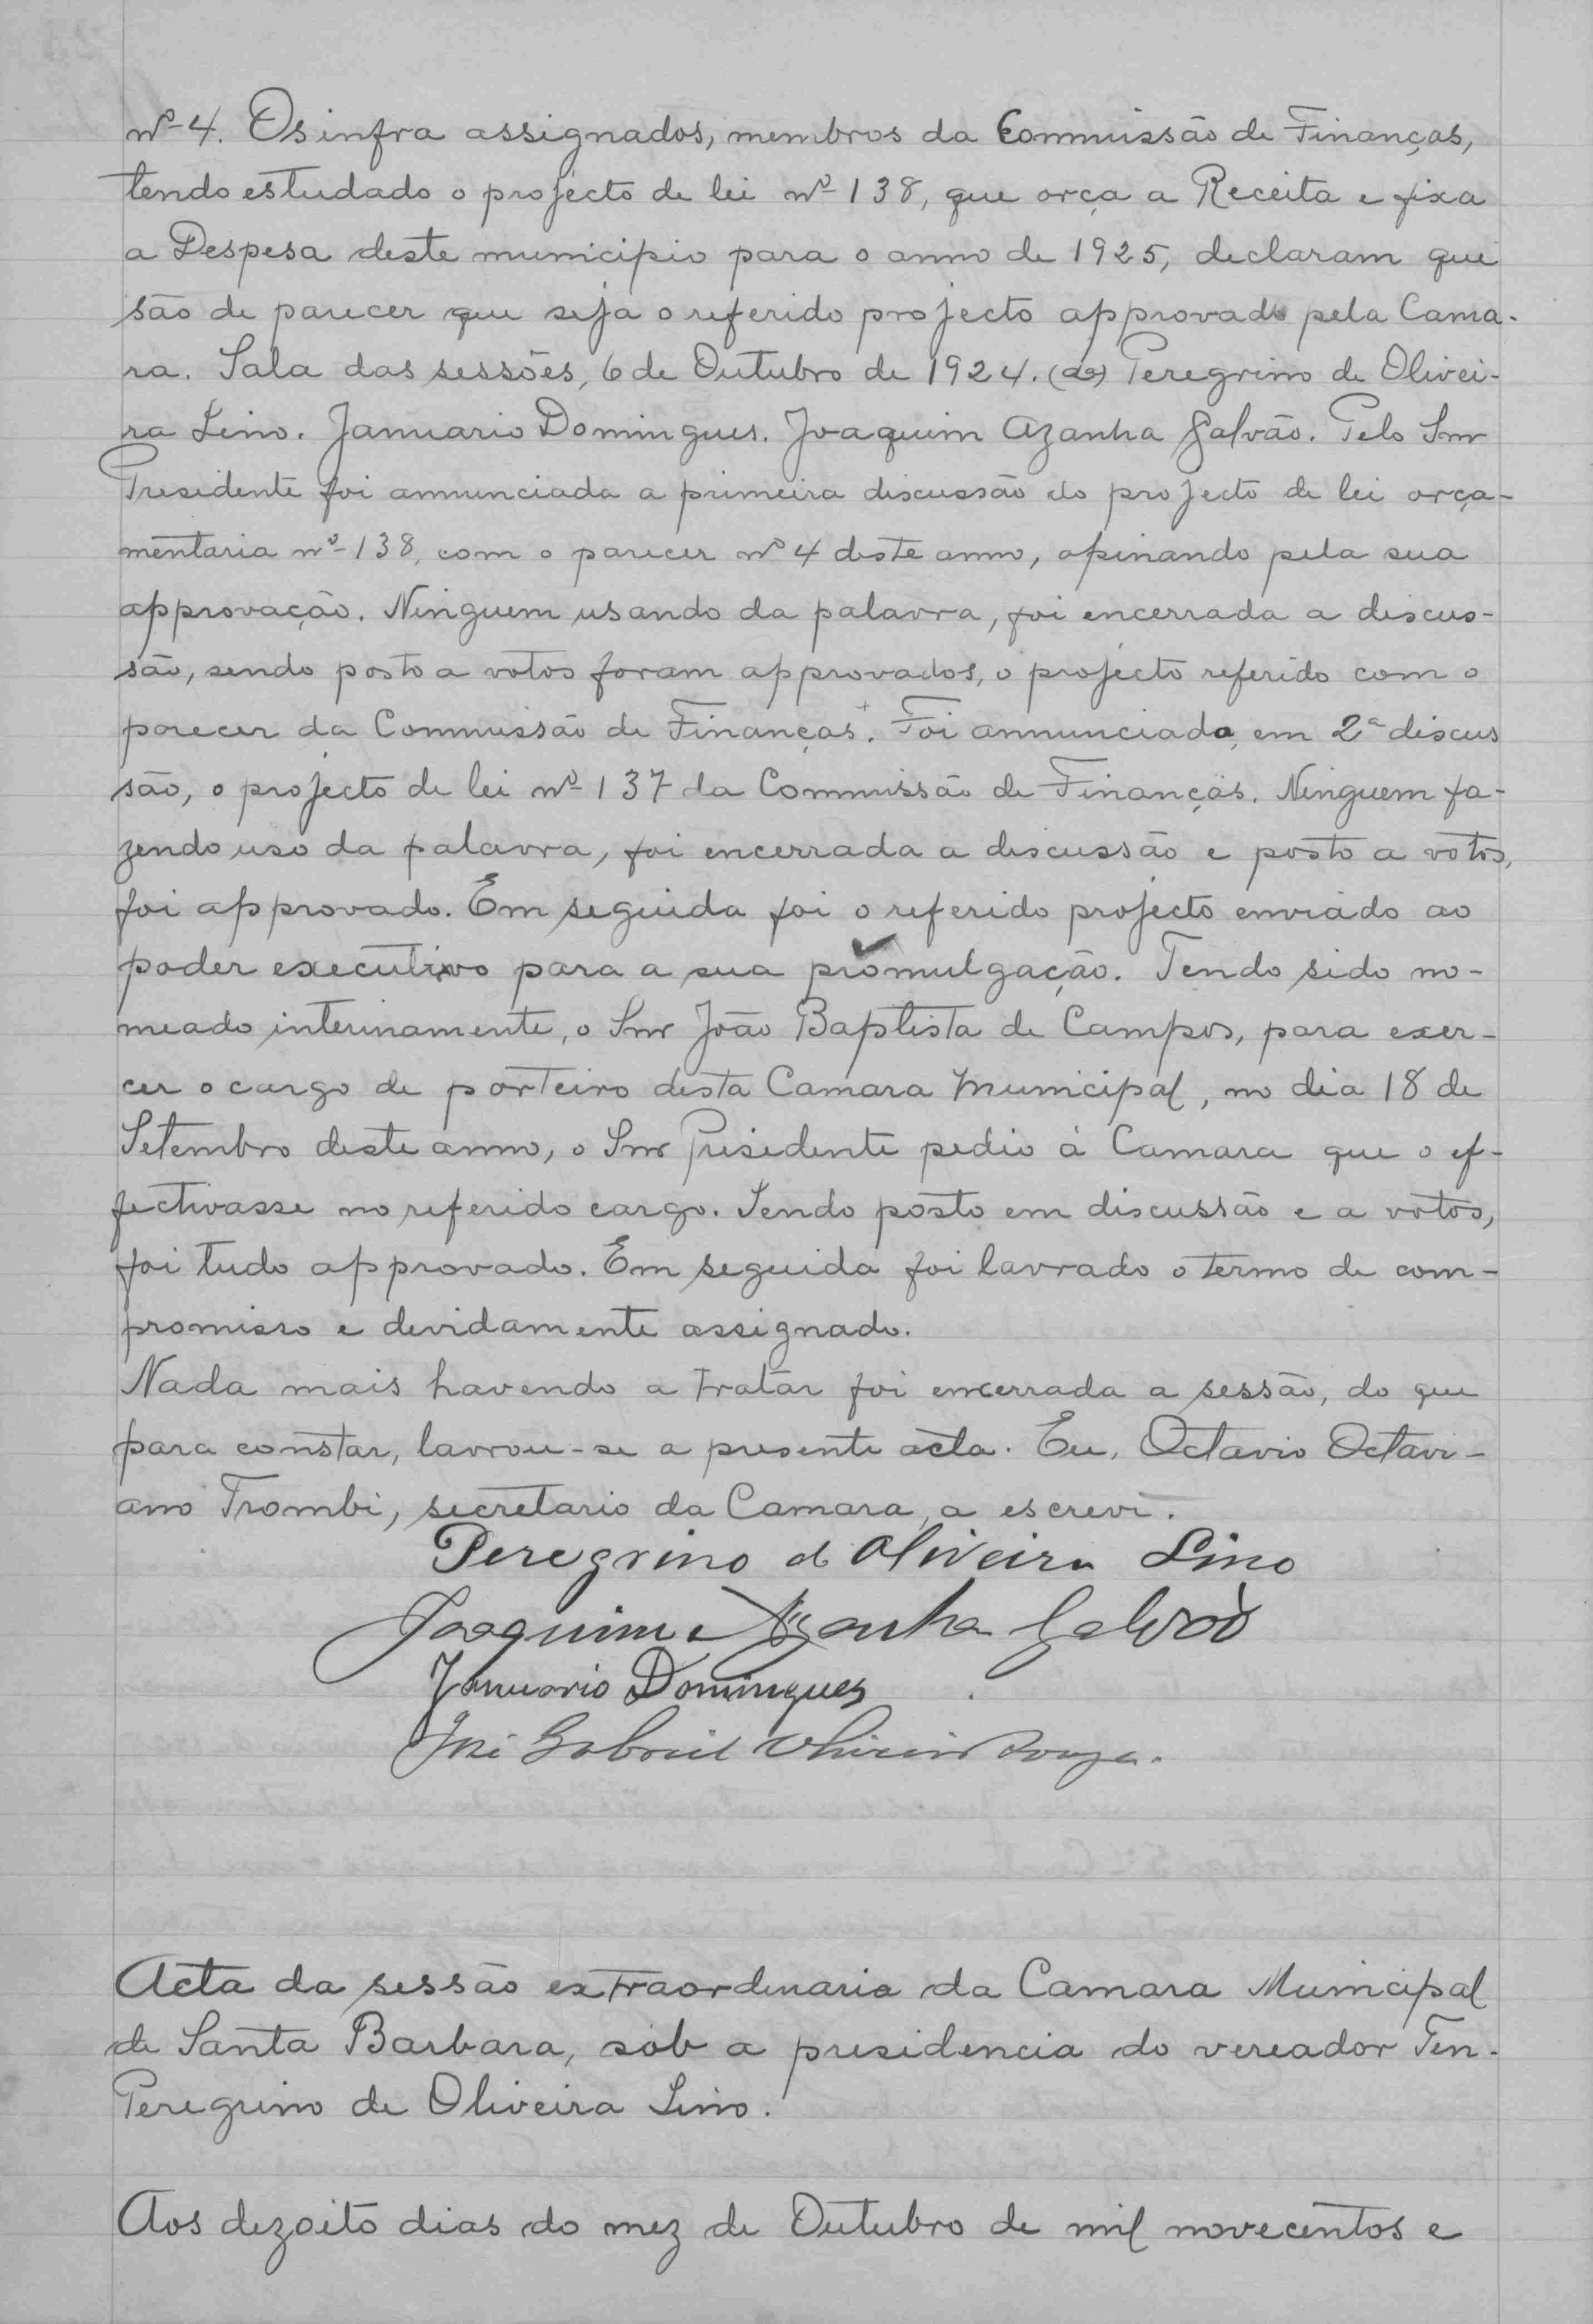 nº 4. Os infra assignados, membros da Commissão de Finanças,
tendo estudado o projecto de lei nº 138, que orça a Receita e fixa
a Despesa deste municipio para o anno de 1925, declaram que
são de parecer que seja o referido projecto approvado pela Cama-
ra. Sala das sessões, 6 de Outubro de 1924. (aa) Peregrino de Olivei-
ra Lino. Januario Domingues. Joaquim Azanha Galvão. Pelo Snr
Presidente foi annunciada a primeira discussão do projecto de lei orça-
mentaria nº 138, com o parecer nº 4 deste anno, opinando pela sua
approvação. Ninguem usando da palavra, foi encerrada a discus-
são, sendo posto a votos foram approvados, o projecto referido com o
parecer da Commissão de Finanças. Foi annunciado, em 2ª discus
são, o projecto de lei nº 137 da Commissão de Finanças. Ninguem fa-
zendo uso da palavra, foi encerrada a discussão e posto a votos,
foi approvado. Em seguida foi o referido projecto enviado ao
poder executivo para a sua promulgação. Tendo sido no-
meado interinamente, o Snr João Baptista de Campos, para exer-
cer o cargo de porteiro desta Camara Municipal, no dia 18 de
Setembro deste anno, o Snr Presidente pedio á Camara que o ef-
fectivasse no referido cargo. Sendo posto em discussão e a votos,
foi tudo approvado. Em seguida foi lavrado o termo de com-
promisso e devidamente assignado.
Nada mais havendo a tratar foi encerrada a sessão, do que
para constar, lavrou-se a presente acta. Eu, Octavio Octavi-
ano Trombi, secretario da Camara, a escrevi.
Peregrino d Oliveira Lino
Joaquim Azanha Galvão
Januario Domingues
José Gabriel Oliveira Souza.
Acta da sessão extraordinaria da Camara Municipal
de Santa Barbara, sob a presidencia do vereador Ten.
Peregrino de Oliveira Lino.
Aos dezoito dias do mez de Outubro de mil novecentos e